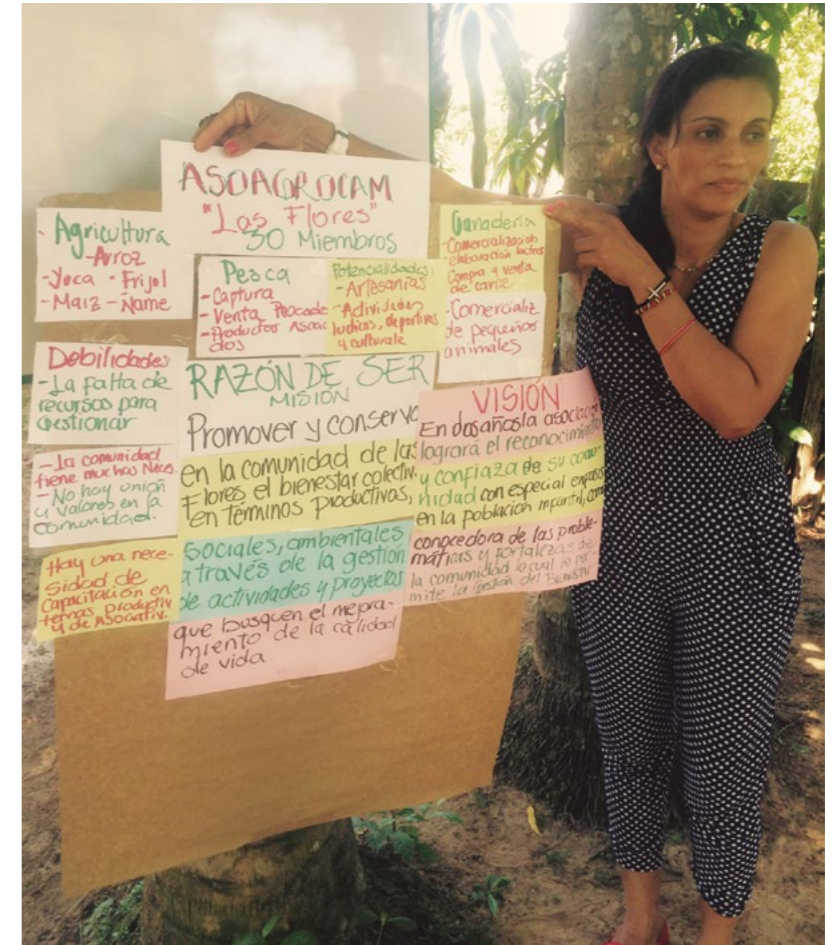 ASOAGROCAM
"Las Flores"
30 Miembros
Agricultura
-Arroz
-Yuca -Frijol
-Maiz -Ñame
Pesca
-Captura
-Venta Pescado
-Productos Asocia
dos
Potencialidades:
-Artesanias
-Actividades
ludicas, deportivas
y culturale
Ganaderia
-Comercialización
elaboración lacteos
Compra y venta
de carne
-Comercializ
de pequeños
animales
Debilidades
-La falta de
recursos para
Gestionar
-La comunidad
tiene muchas Neces.
-No hay unión
y valores en la
comunidad.
Hay una nece-
sidad de
Capacitación en
temas productiv
y de Asociativ.
RAZÓN DE SER
MISIÓN
Promover y conserva
en la comunidad de las
Flores el bienestar colectiv
en términos productivos,
sociales, ambientales
a través de la gestión
de actividades y proyectos
que busquen el mejora-
miento de la calidad
de vida
VISIÓN
En dos años la asociación
logrará el reconocimiento
y confiaza de su comu
nidad con especial enfasis
en la población infantil, como
conocedora de las proble-
maticas y fortalezas de
la comunidad lo cual le per
mite la gestion del Bienestar